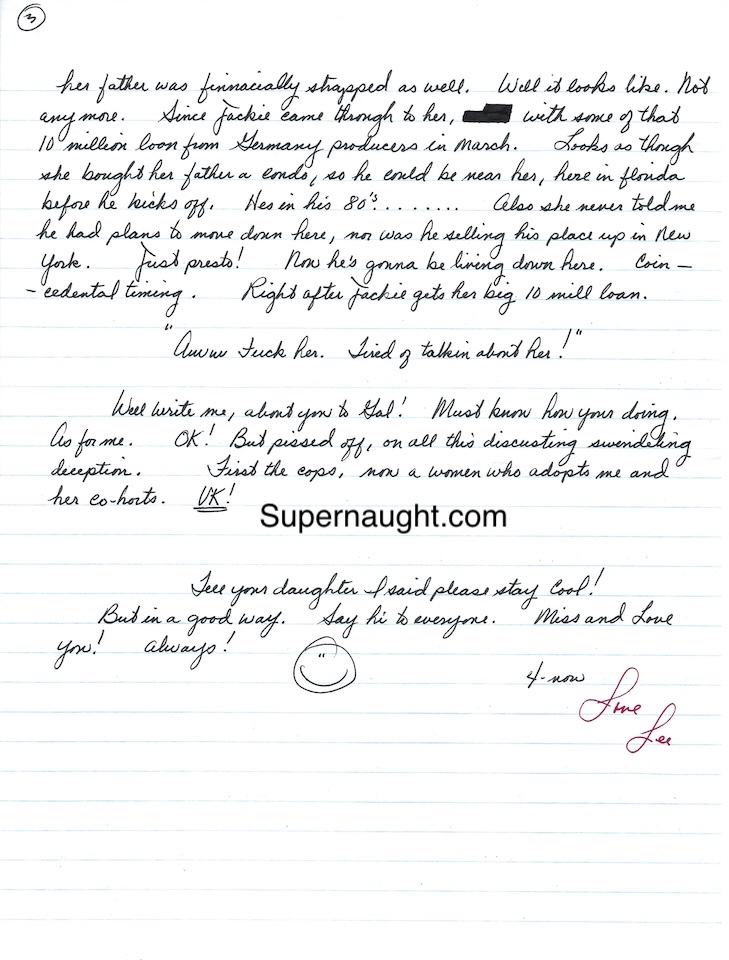 3
her father was finnacially strapped as well. Well it looks like. Not
any more. Since Jackie came through to her, with some of that
10 million loan from Germany producers in March. Looks as though
she bought her father a condo, so he could be near her, here in florida
before he kicks off. Hes in his 80's........ Also she never told me
he had plans to move down here, nor was he selling his place up in New
York. Just presto! Now he's gonna be living down here. Coin –
– cedental timing. Right after Jackie gets her big 10 mill loan.
"Awww Fuck her. Tired of talkin about her!"
Well write me, about you to Gal! Must know how your doing.
As for me. OK! But pissed off, on all this discusting swindeling
deception. First the cops, now a women who adopts me and
her co-horts. UK!
Supernaught.com
Tell your daughter I said please stay Cool!
But in a good way. Say hi to everyone. Miss and Love
you! Always!
4-now
Love
Lee